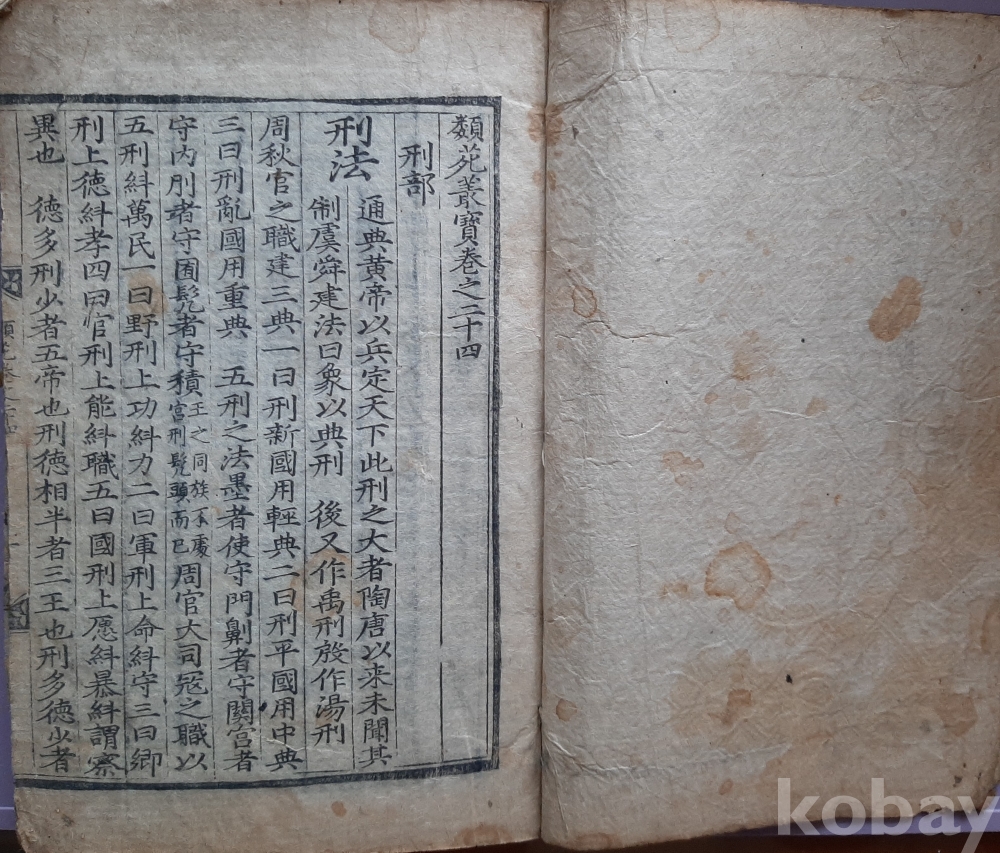 類苑叢寶卷之二十四
刑部
刑法 通典黃帝以兵定天下此刑之大者陶唐以来未聞其
制虞舜建法曰象以典刑 後又作禹刑殷作湯刑
周秋官之職建三典一曰刑新國用輕典二曰刑平國用中典
三曰刑亂國用重典 五刑之法墨者使守門劓者守關宮者
守內刖者守囿髡者守積王之同族不處宮刑髡頭而已周官大司寇之職以
五刑糾萬民一曰野刑上功糾力二曰軍刑上命糾守三曰鄉
刑上德糾孝四曰官刑上能糾職五曰國刑上愿糾暴糾謂察
異也 德多刑少者五帝也刑德相半者三王也刑多德少者
kobay